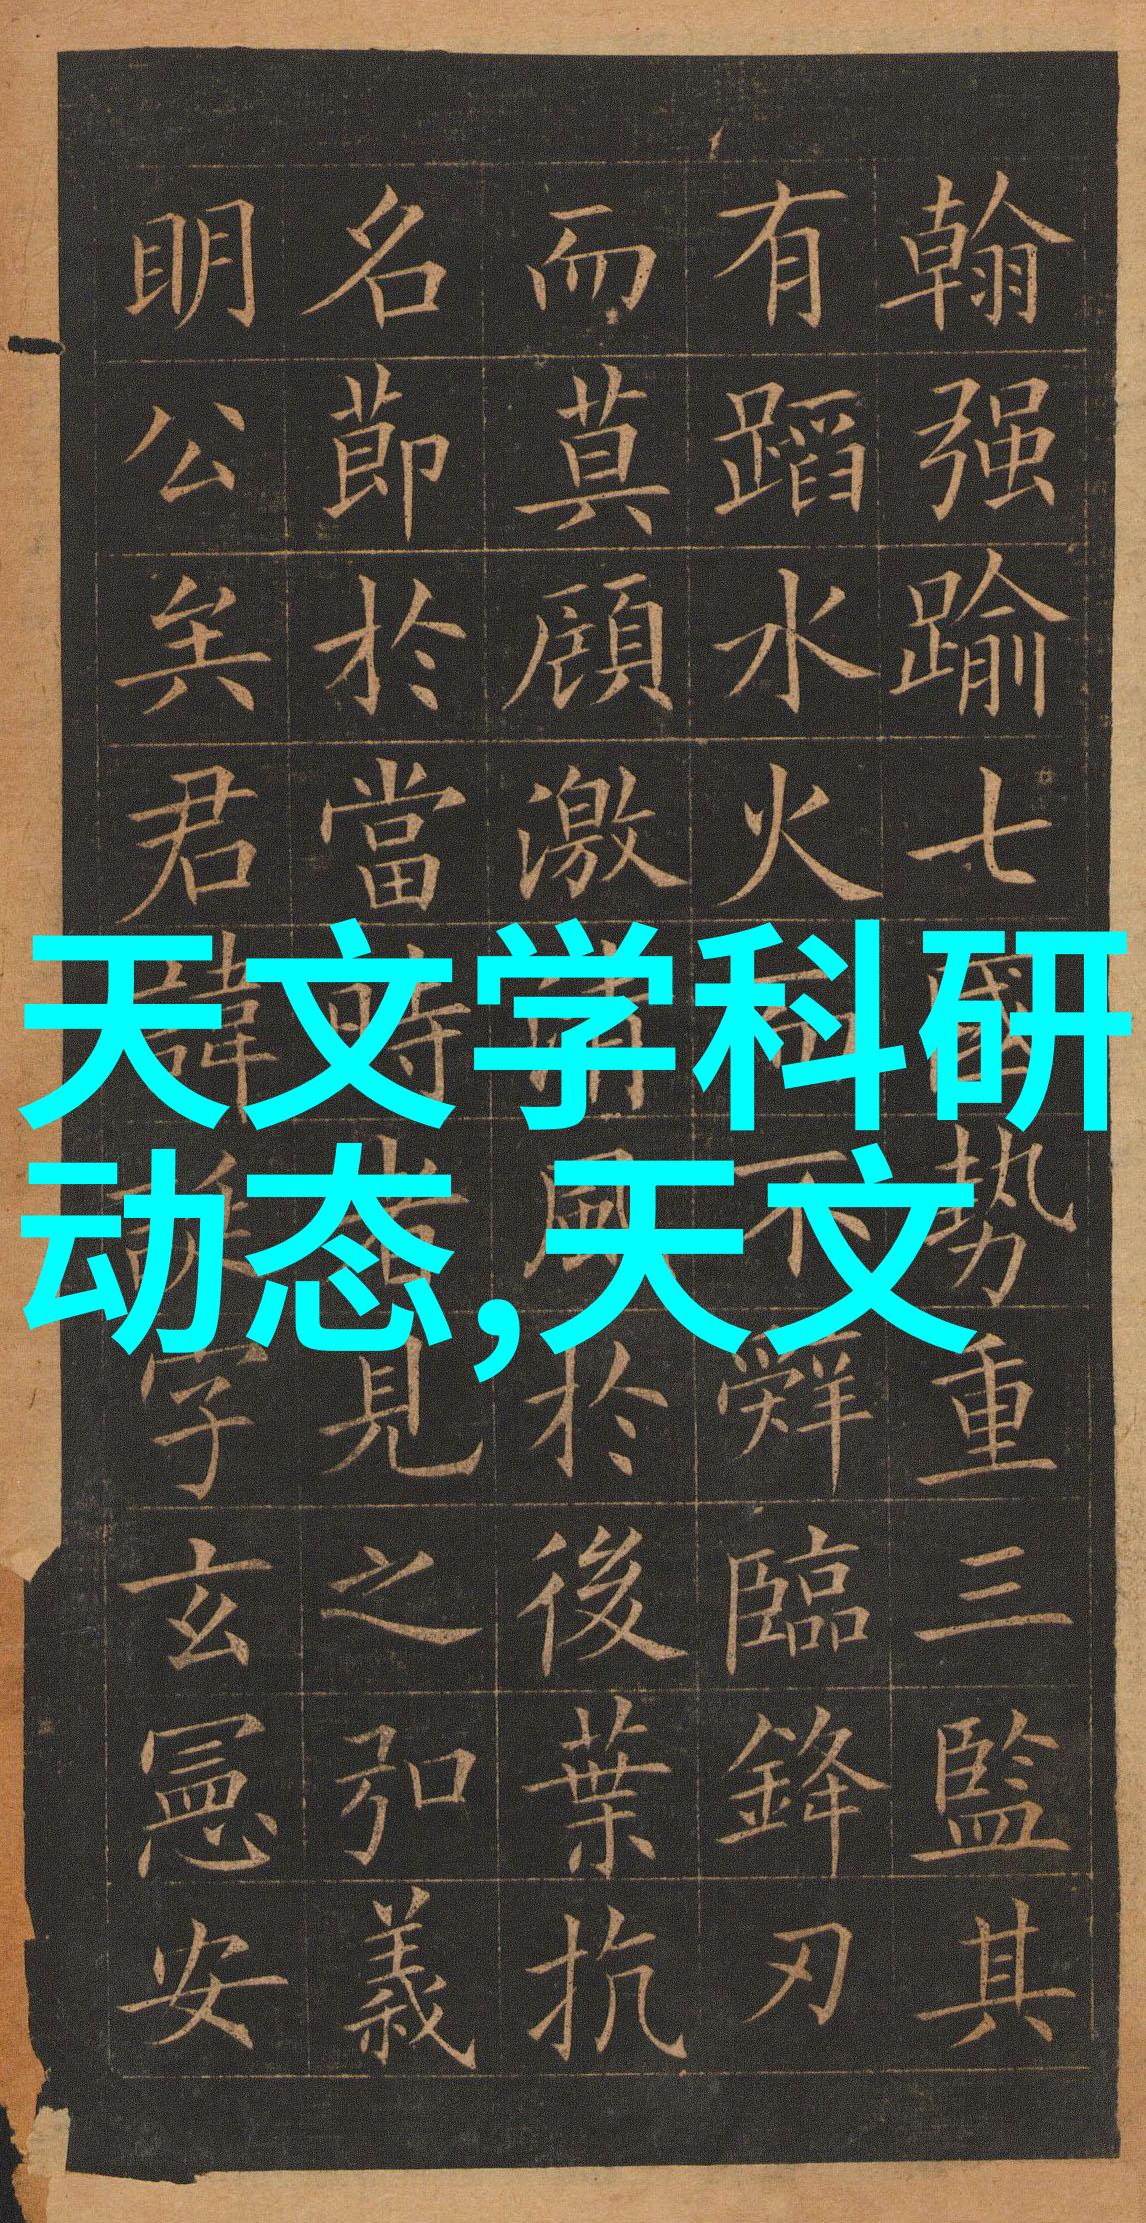 天文学科研
动态,天文
翰强踰七國勢重三監其
有蹈水火而不辭臨鋒刃
而莫顧激清風於後葉抗
名節於當時者見之弘義
明公矣君諱誕字玄憲安